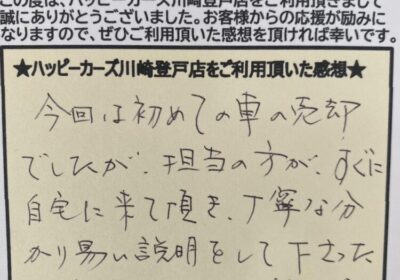 この度は、ハッピーカーズ川崎登戸店をご利用頂きまして
誠にありがとうございました。お客様からの応援が励みに
なりますので、ぜひご利用頂いた感想を頂ければ幸いです。
★ハッピーカーズ川崎登戸店をご利用頂いた感想★
今回は初めての車の売却
でしたが、担当の方が、すぐに
自宅に来て頂き、丁寧な分
かり易い説明をして下さった